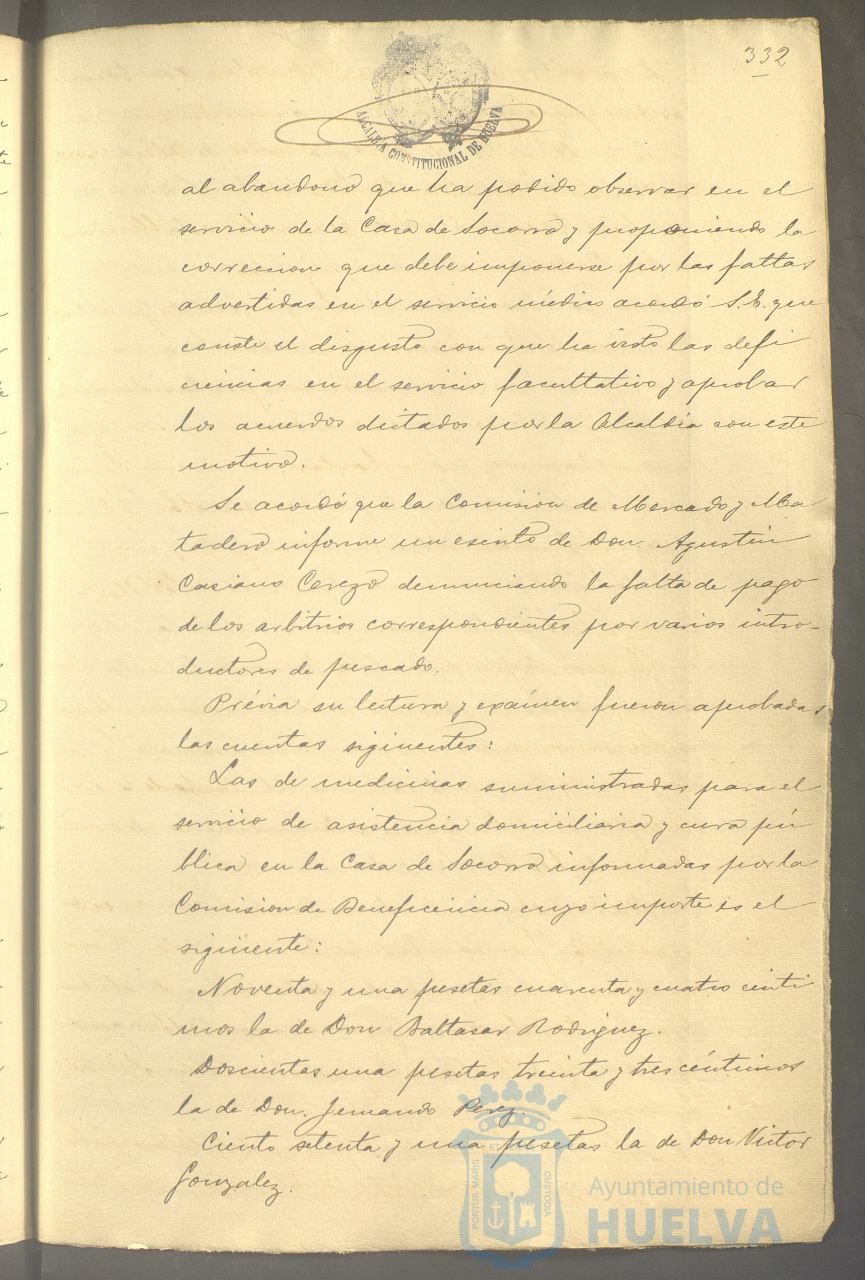 332
ALCALDIA CONSTITUCIONAL DE HUELVA
al abandono que ha podido observar en el
servicio de la Casa de Socorro y proponiendo la
correccion que debe imponerse por las faltas
advertidas en el servicio médico acordó S.E. que
conste el disgusto con que ha visto las defi
ciencias en el servicio facultativo y aprobar
los acuerdos dictados por la Alcaldia con este
motivo.
Se acordó que la Comision de Mercado y Ma
tadero informe un escrito de Don Agustin
Casiano Cerezo denunciando la falta de pago
de los arbitrios correspondientes por varios intro-
ductores de pescado.
Prévia su lectura y exámen fueron aprobadas
las cuentas siginentes:
Las de medicinas suministradas para el
servicio de asistencia domiciliaria y cura pú
blica en la Casa de Socorro informadas por la
Comision de Beneficencia cuyo importe es el
siguiente:
Noventa y una pesetas cuarenta y cuatro centi
mos la de Don Baltasar Rodriguez.
Doscientas una pesetas treinta y tres céntimos
la de Don Fernando Perez.
Ciento setenta y una pesetas la de Don Victor
Gonzalez.
PORTUS MARIS ET TERRÆ CUSTODIA
Ayuntamiento de
HUELVA